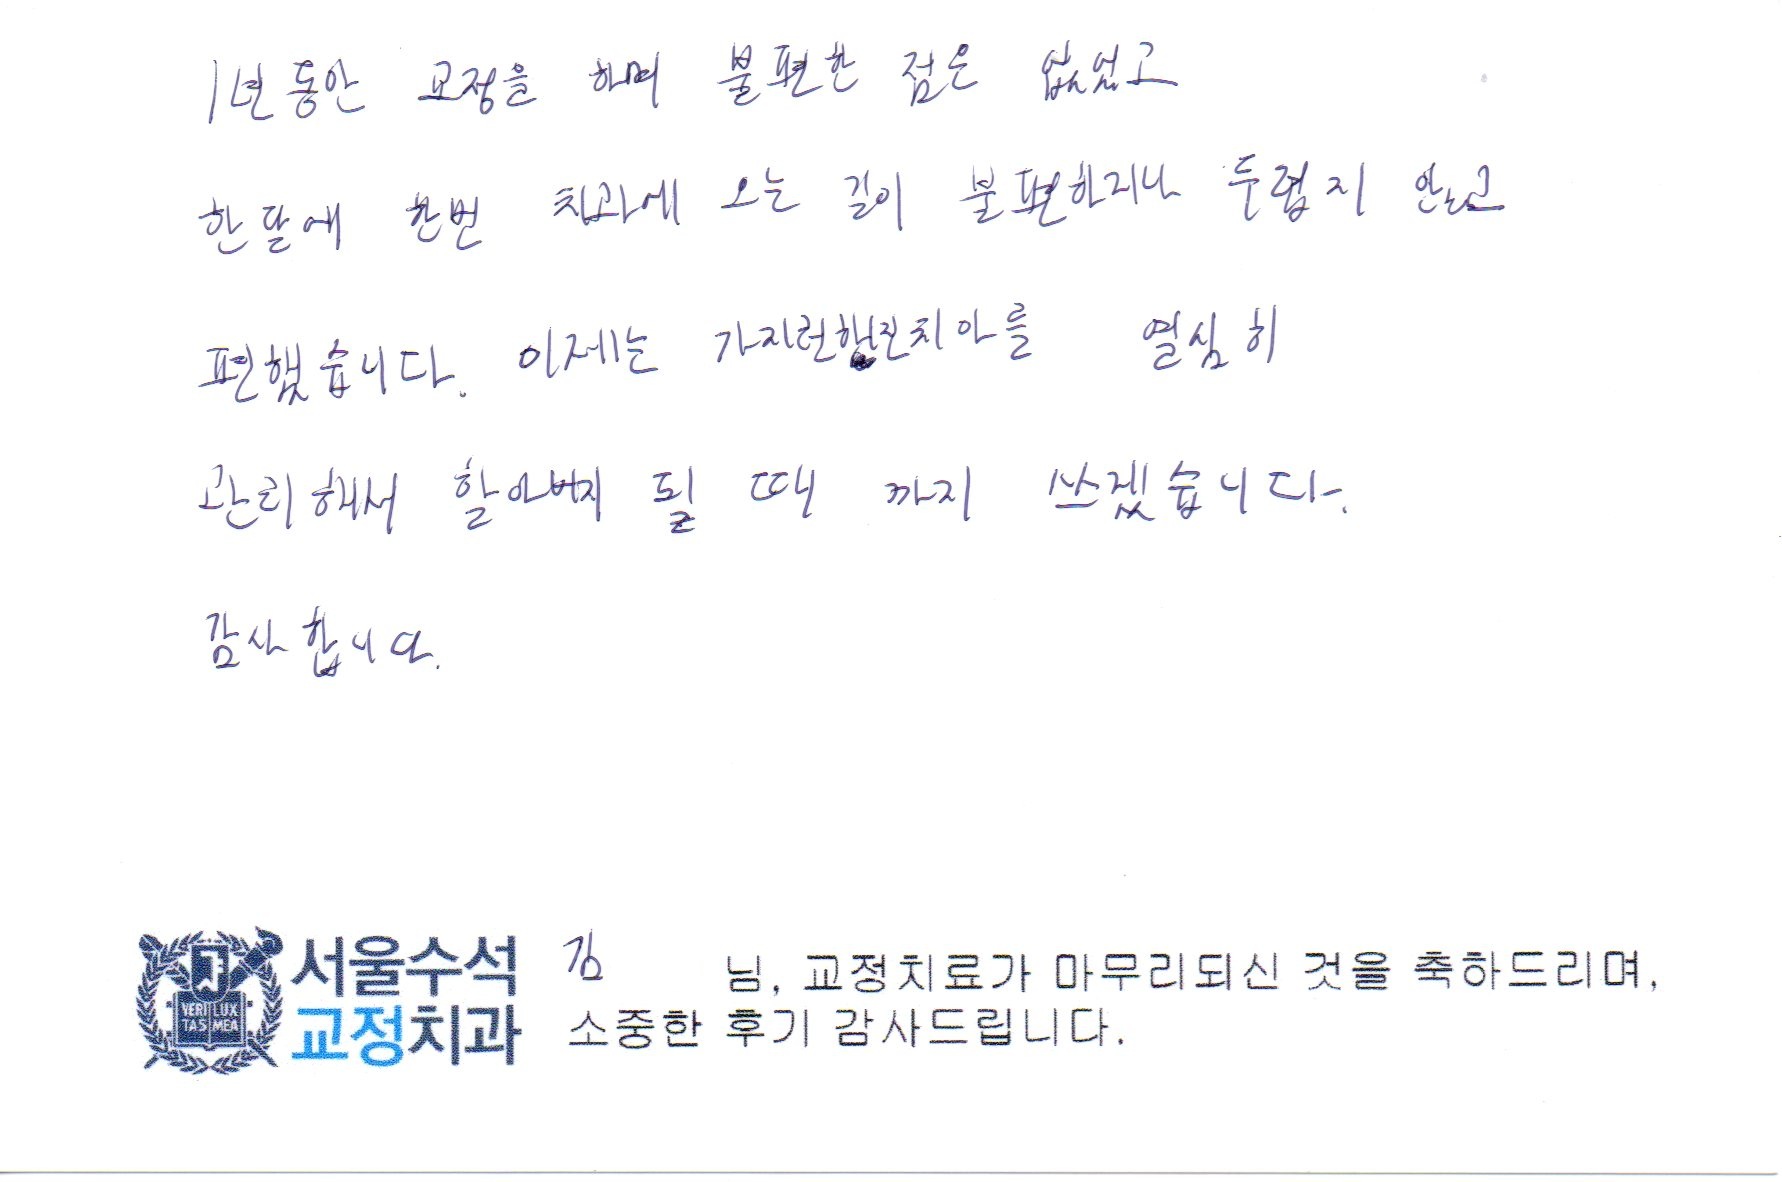 1년동안 교정을 하며 불편한 점은 없었고
한달에 한번 치과에 오는 길이 불편하거나 두렵지 안고
편했습니다. 이제는 가지런해진치아를 열심히
관리해서 할아버지 될 때 까지 쓰겠습니다.
감사합니다.
서울수석
교정치과
VERI LUX
TAS MEA
김 님, 교정치료가 마무리되신 것을 축하드리며,
소중한 후기 감사드립니다.